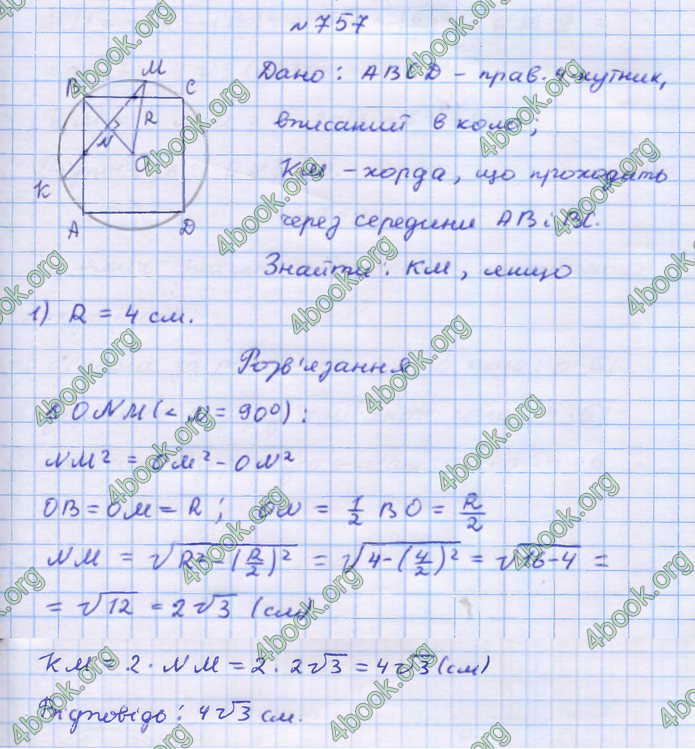 № 757
Дано: ABCD – прав. 4 кутник,
вписаний в коло;
KM – хорда, що проходить
через середини AB і BC.
Знайти: KM, якщо
1) R = 4 см.
Розв'язання
Δ ONM (∠N = 90°):
NM² = OM² - ON²
OB = OM = R; ON = 1/2 BO = R/2
NM = √(R² - (R/2)²) = √(4 - (4/2)²) = √(16 - 4) =
= √12 = 2√3 (см)
KM = 2 · NM = 2 · 2√3 = 4√3 (см)
Відповідь: 4√3 см.
B
M
C
R
N
O
K
A
D
4book.org